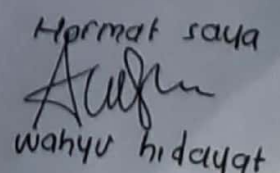 Hormat saya
wahyu hidayat